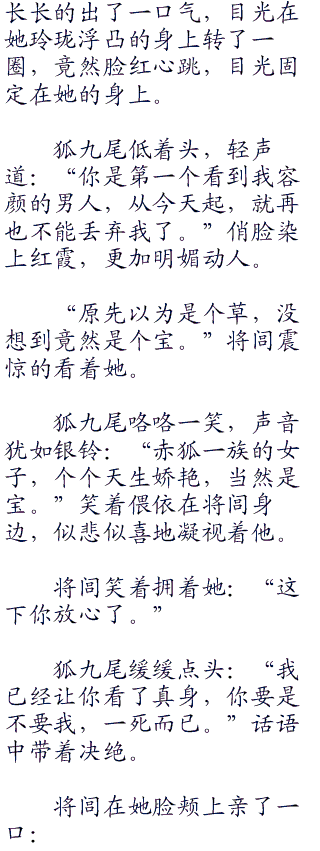 长长的出了一口气，目光在
她玲珑浮凸的身上转了一
圈，竟然脸红心跳，目光固
定在她的身上。
狐九尾低着头，轻声
道：“你是第一个看到我容
颜的男人，从今天起，就再
也不能丢弃我了。”俏脸染
上红霞，更加明媚动人。
“原先以为是个草，没
想到竟然是个宝。”将闾震
惊的看着她。
狐九尾咯咯一笑，声音
犹如银铃：“赤狐一族的女
子，个个天生娇艳，当然是
宝。”笑着偎依在将闾身
边，似悲似喜地凝视着他。
将闾笑着拥着她：“这
下你放心了。”
狐九尾缓缓点头：“我
已经让你看了真身，你要是
不要我，一死而已。”话语
中带着决绝。
将闾在她脸颊上亲了一
口：